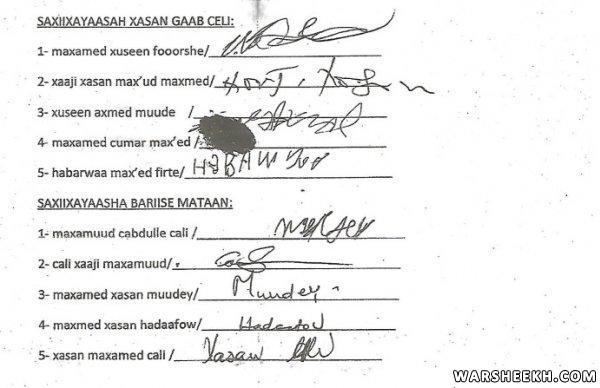 SAXIIXAYAASAH XASAN GAAB CELI:
1- maxamed xuseen fooorshe/
2- xaaji xasan max'ud maxmed/
3- xuseen axmed muude /
4- maxamed cumar max'ed/
5- habarwaa max'ed firte/
SAXIIXAYAASHA BARIISE MATAAN:
1- maxamuud cabdulle cali /
2- cali xaaji maxamuud/
3- maxamed xasan muudey/ Muudey
4- maxmed xasan hadaafow/ Hadaafow
5- xasan maxamed cali / Xasan
WARSHEEKH.COM